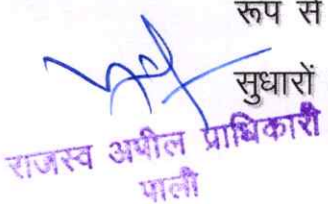 रूप से
सुधारों
राजस्व अपील प्राधिकारी
पाली